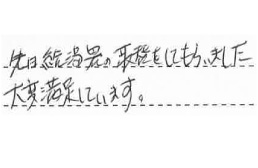 先日給湯器の取替をしてもらいました
大変満足しています。